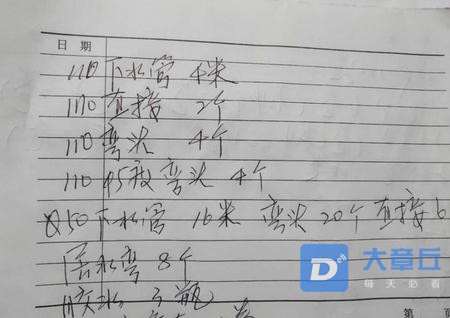 日期
110下水管 4米
110直接 2个
110弯头 4个
110 45度弯头 4个
50下水管 16米 弯头20个 直接6
存水弯 8个
胶水 3瓶
大章丘
每天必看
第 页